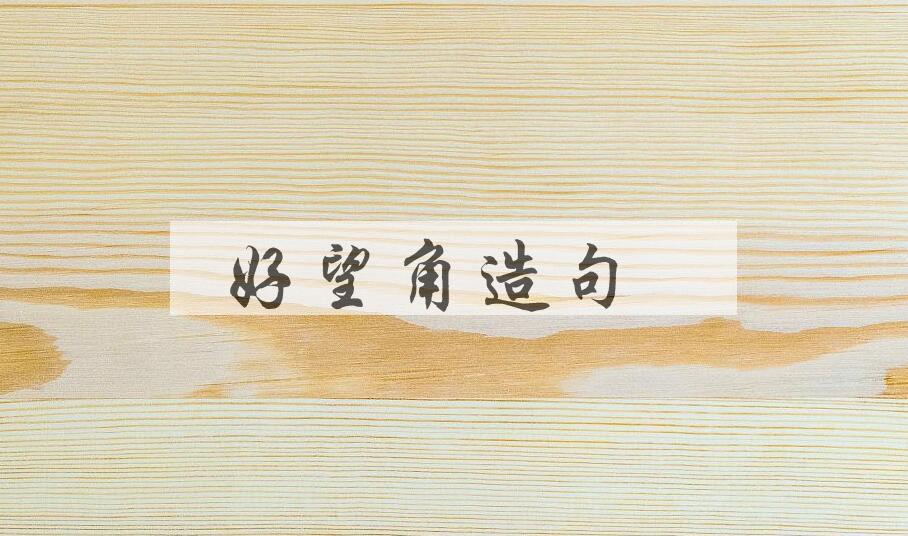 好望角造句